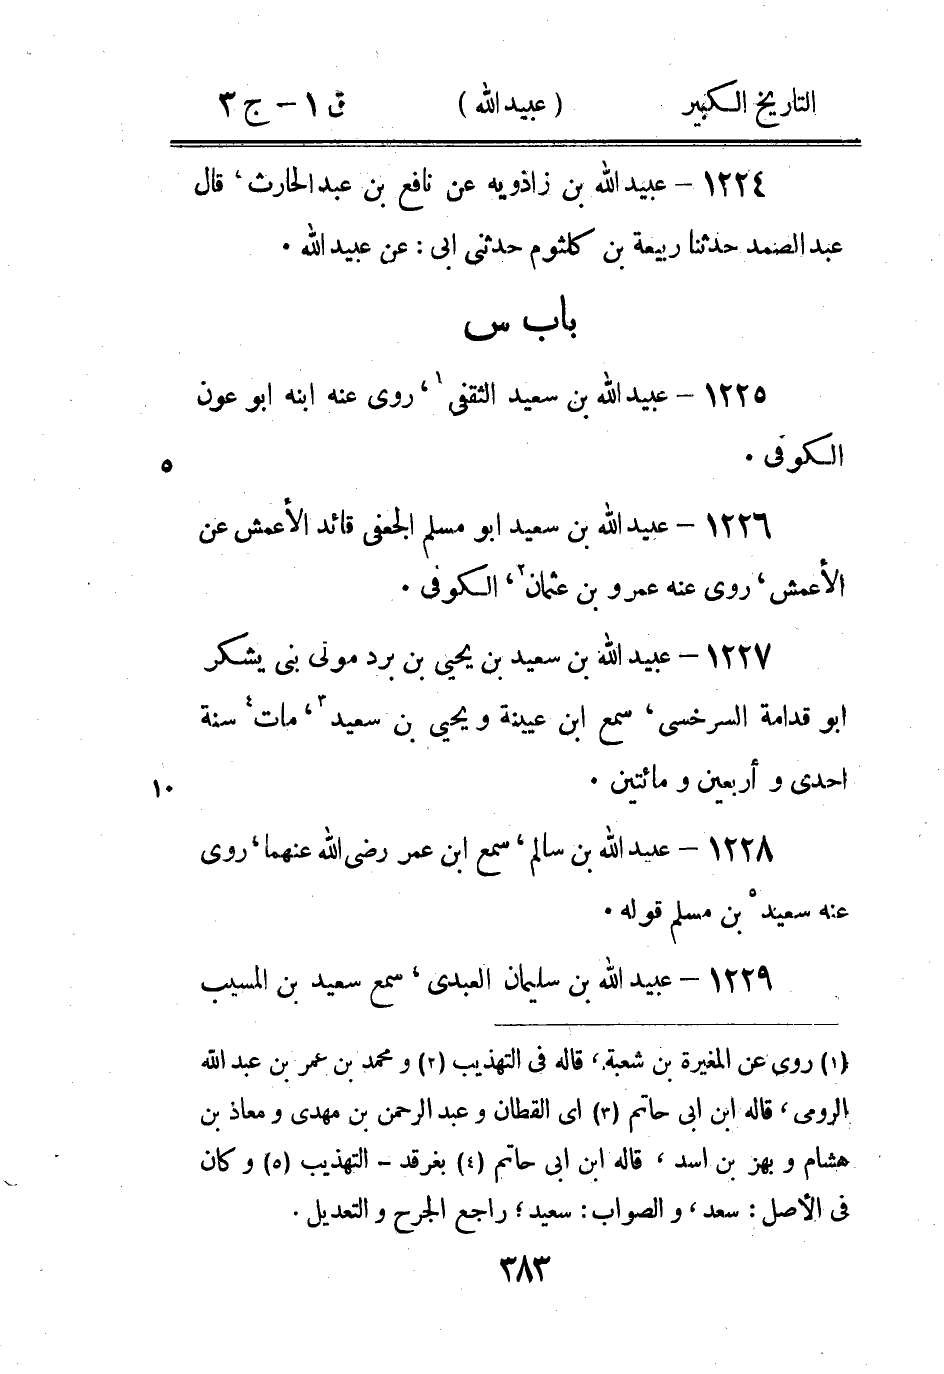 التاريخ الكبير ( عبيد الله ) ق ١ - ج ٣
١٢٢٤ - عبيد الله بن زاذويه عن نافع بن عبد الحارث، قال
عبد الصمد حدثنا ربيعة بن كلثوم حدثني ابى : عن عبيد الله .
باب س
١٢٢٥ - عبيد الله بن سعيد الثقفى ١، روى عنه ابنه ابو عون
الكوفى . ٥
١٢٢٦ - عبيد الله بن سعيد ابو مسلم الجعفى قائد الأعمش عن
الأعمش، روى عنه عمرو بن عثمان ٢، الكوفى .
١٢٢٧ - عبيد الله بن سعيد بن يحيى بن برد مولى بنى يشكر
ابو قدامة السرخسى، سمع ابن عيينة و يحيى بن سعيد ٣، مات ٤ سنة
احدى و أربعين و مائتين . ١٠
١٢٢٨ - عبيد الله بن سالم، سمع ابن عمر رضى الله عنهما، روى
عنه سعيد ٥ بن مسلم قوله .
١٢٢٩ - عبيد الله بن سليمان العبدى، سمع سعيد بن المسيب
(١) روى عن المغيرة بن شعبة، قاله فى التهذيب (٢) و محمد بن عمر بن عبد الله
الرومى، قاله ابن ابى حاتم (٣) اى القطان و عبد الرحمن بن مهدى و معاذ بن
هشام و بهز بن اسد، قاله ابن ابى حاتم (٤) بغرقد - التهذيب (٥) و كان
فى الأصل : سعد، و الصواب : سعيد ؛ راجع الجرح و التعديل .
٣٨٣